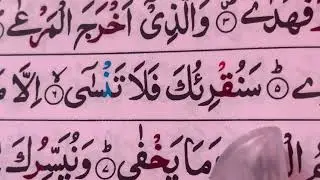 فَهَدٰى ۝٣ وَالَّذِیْۤ اَخْرَجَ الْمَرْعٰی
۝٥ سَنُقْرِئُكَ فَلَا تَنْسٰۤی ۝٦ اِلَّا
وَمَا یَخْفٰی ۝٧ وَنُیَسِّرُكَ